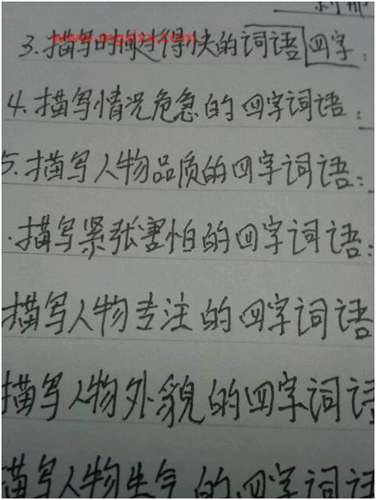 3.描写时间过得快的词语四字
4.描写情况危急的四字词语:
5.描写人物品质的四字词语:
.描写紧张害怕的四字词语:
描写人物专注的四字词语
描写人物外貌的四字词语
描写人物生气的四字词语